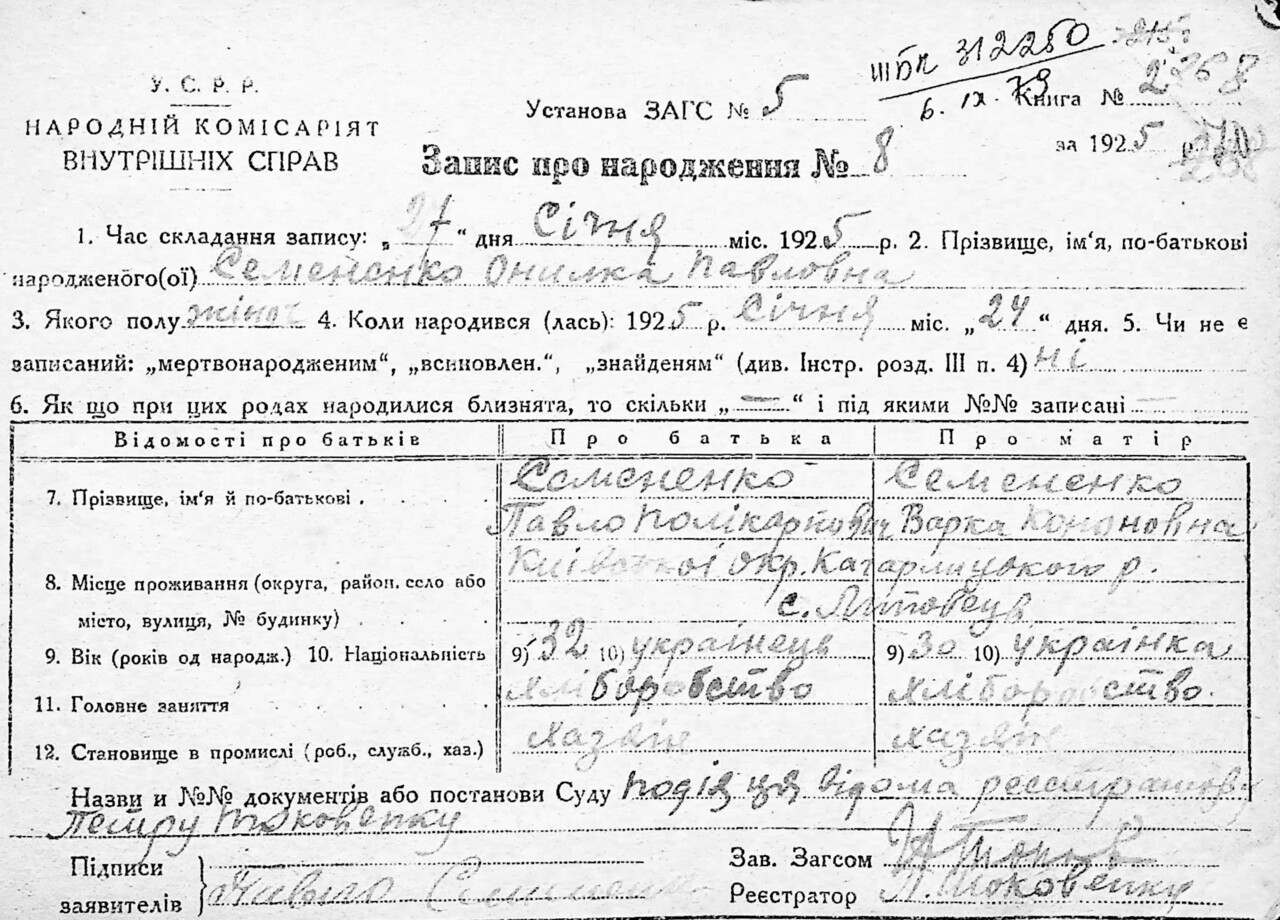 У. С. Р. Р.
НАРОДНІЙ КОМІСАРІЯТ
ВНУТРІШНІХ СПРАВ
ШБК 312250
6. IX. 79
Установа ЗАГС № 5
Книга № 2 268
за 1925 р.
Запис про народження № 8
1. Час складання запису: „27“ дня Січня міс. 1925 р. 2. Прізвище, ім‘я, по-батькові
народженого(ої) Семененко Онилка Павловна
3. Якого полу жіноч 4. Коли народився (лась): 1925 р. Січня міс. „24“ дня. 5. Чи не є
записаний: „мертвонародженим“, „всиновлен.“, „знайденям“ (див. Інстр. розд. III п. 4) ні
6. Як що при цих родах народилися близнята, то скільки „—“ і під якими №№ записані —
Відомості про батьків Про батька Про матір
7. Прізвище, ім‘я й по-батькові . Семененко Семененко
Павло Полікарпович Варка Кононовна
8. Місце проживання (округа, район, село або Київської окр. Кагарлицького р.
місто, вулиця, № будинку) с. Липовець
9. Вік (років од народж.) 10. Національність 9) 32 10) українець 9) 30 10) українка
11. Головне заняття хліборобство хліборобство
12. Становище в промислі (роб., служб., хаз.) хазяїн хазяїн
Назви и №№ документів або постанови Суду подія ця відома реєстратору
Петру Токовенку
Підписи
заявителів Павло Семененко
Зав. Загсом
Реєстратор П. Токовенку